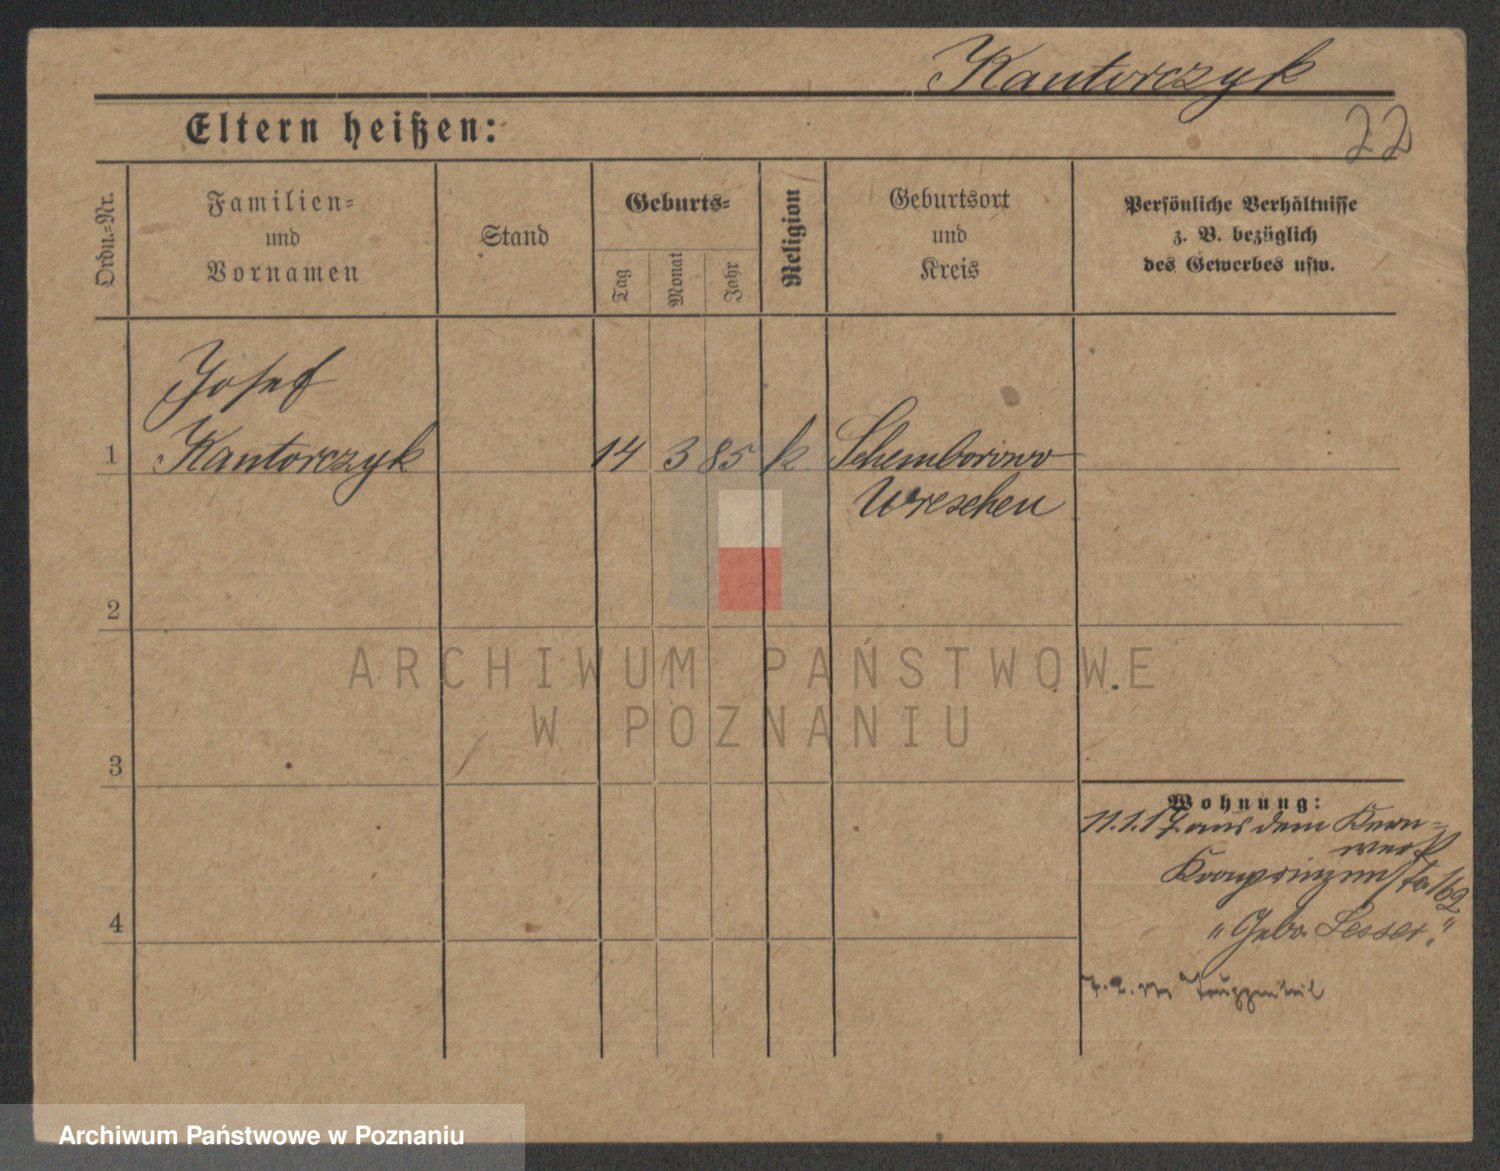 Kantorczyk
22
Eltern heißen:
Ordn.-Nr.
Familien-
und
Vornamen
Stand
Geburts-
Tag
Monat
Jahr
Religion
Geburtsort
und
Kreis
Persönliche Verhältnisse
z. B. bezüglich
des Gewerbes usw.
Josef
1 Kantorczyk 14 3 85 k. Schemborowo
Wreschen
2
ARCHIWUM PAŃSTWOWE
W POZNANIU
3
Wohnung:
11.1.17 aus dem Kern-
werk
Kronprinzenstr. 102
"Gebr. Lesser."
4
Truppenteil
Archiwum Państwowe w Poznaniu